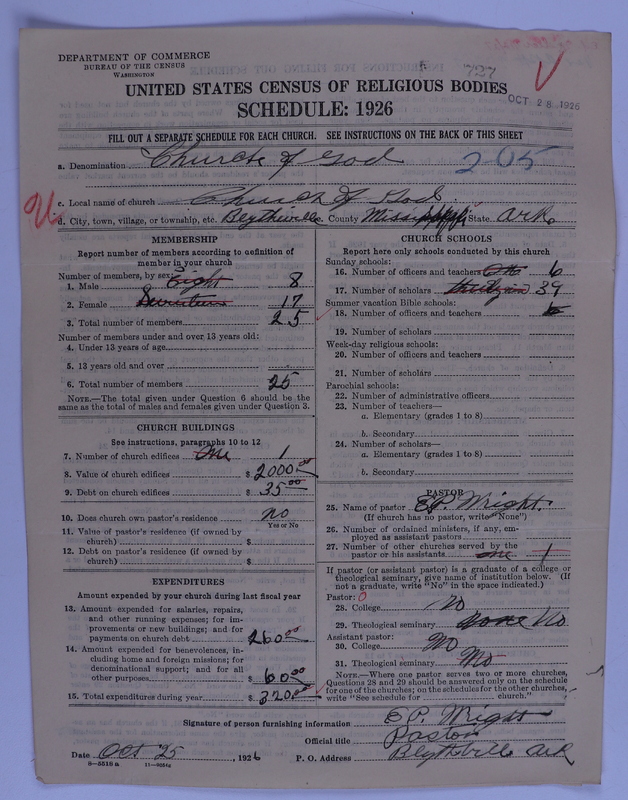 DEPARTMENT OF COMMERCE
BUREAU OF THE CENSUS
WASHINGTON
727
UNITED STATES CENSUS OF RELIGIOUS BODIES
OCT 28 1926
SCHEDULE: 1926
FILL OUT A SEPARATE SCHEDULE FOR EACH CHURCH. SEE INSTRUCTIONS ON THE BACK OF THIS SHEET
a. Denomination Church of God 205
c. Local name of church Church of God.
d. City, town, village, or township, etc. Blytheville County Mississippi State Ark.
MEMBERSHIP
Report number of members according to definition of
member in your church
Number of members, by sex:
1. Male Eight 8
2. Female Seventeen 17
3. Total number of members 25
Number of members under and over 13 years old:
4. Under 13 years of age
5. 13 years old and over
6. Total number of members 25
NOTE.—The total given under Question 6 should be the
same as the total of males and females given under Question 3.
CHURCH BUILDINGS
See instructions, paragraphs 10 to 12
7. Number of church edifices One 1
8. Value of church edifices $ 2000 00
9. Debt on church edifices $ 35 00
10. Does church own pastor's residence no
Yes or No
11. Value of pastor's residence (if owned by
church) $
12. Debt on pastor's residence (if owned by
church) $
EXPENDITURES
Amount expended by your church during last fiscal year
13. Amount expended for salaries, repairs,
and other running expenses; for im-
provements or new buildings; and for
payments on church debt 260 00
14. Amount expended for benevolences, in-
cluding home and foreign missions; for
denominational support; and for all
other purposes $ 60 00
15. Total expenditures during year $ 320 00
CHURCH SCHOOLS
Report here only schools conducted by this church
Sunday schools:
16. Number of officers and teachers 6
17. Number of scholars 39
Summer vacation Bible schools:
18. Number of officers and teachers
19. Number of scholars
Week-day religious schools:
20. Number of officers and teachers
21. Number of scholars
Parochial schools:
22. Number of administrative officers
23. Number of teachers—
a. Elementary (grades 1 to 8)
b. Secondary
24. Number of scholars—
a. Elementary (grades 1 to 8)
b. Secondary
PASTOR
25. Name of pastor E.P. Wright.
(If church has no pastor, write "None")
26. Number of ordained ministers, if any, em-
ployed as assistant pastors
27. Number of other churches served by the
pastor or his assistants one 1
If pastor (or assistant pastor) is a graduate of a college or
theological seminary, give name of institution below. (If
not a graduate, write "No" in the space indicated.)
Pastor: 0
28. College No
29. Theological seminary none No
Assistant pastor:
30. College No
31. Theological seminary No
NOTE.—Where one pastor serves two or more churches,
Questions 28 and 29 should be answered only on the schedule
for one of the churches; on the schedules for the other churches,
write "See schedule for church."
Signature of person furnishing information E.P. Wright
Official title Pastor
Date Oct 25, 1926 P. O. Address Blytheville Ark